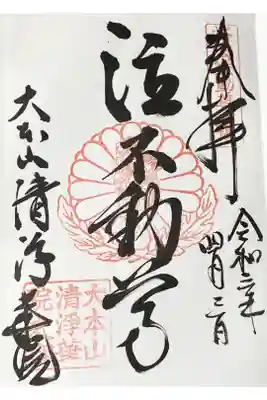 奉拝
令和二年
四月二日
泣不動尊
大本山清浄華院
大本山
清浄華
院